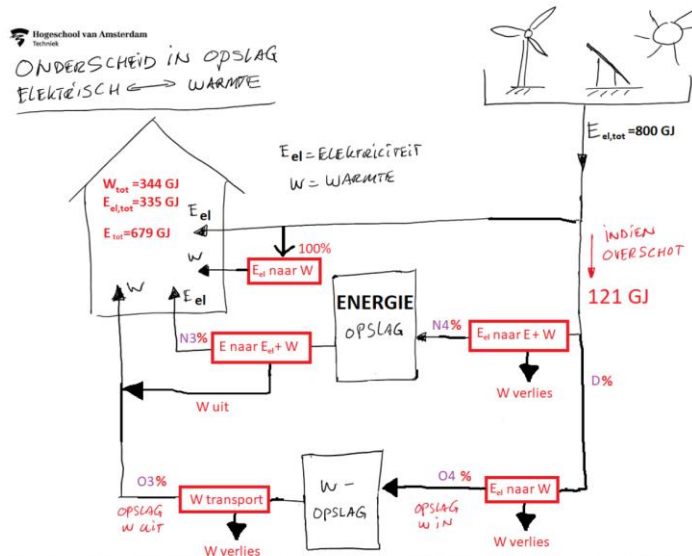 Hogeschool van Amsterdam
Techniek
ONDERSCHEID IN OPSLAG
ELEKTRISCH ⟷ WARMTE
E el,tot =800 GJ
E el = ELEKTRICITEIT
W = WARMTE
W tot =344 GJ
E el,tot =335 GJ
E tot =679 GJ
E el
100%
W
E el naar W
INDIEN
OVERSCHOT
121 GJ
W
E el
ENERGIE
OPSLAG
N3%
E naar E el + W
N4%
E el naar E+ W
W uit
W verlies
D%
O3%
W transport
W-
OPSLAG
O4 %
E el naar W
OPSLAG
W UIT
OPSLAG
W IN
W verlies
W verlies